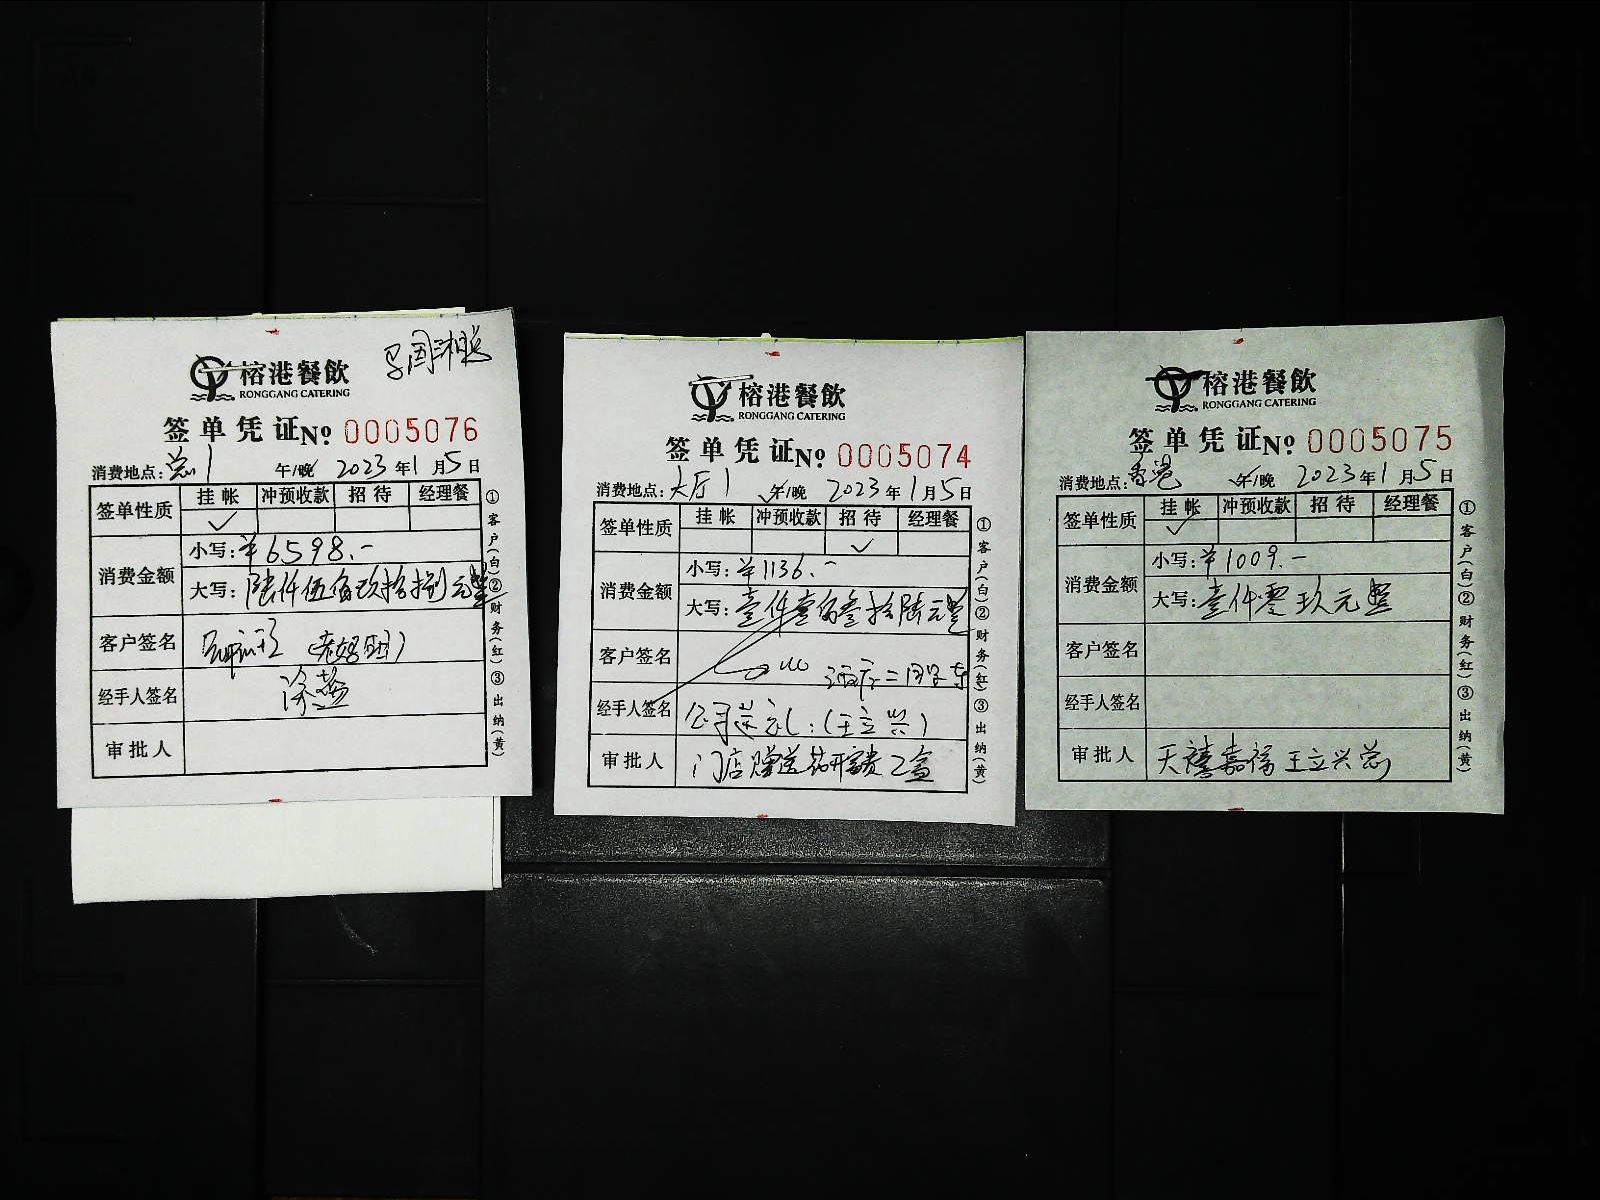 榕港餐飲
RONGGANG CATERING
签单凭证 № 0005076
消费地点: 总1 午/晚 2023年1月5日
签单性质 挂帐 冲预收款 招待 经理餐
✓
消费金额
小写:¥6598.-
大写:陆仟伍佰玖拾捌元整
客户签名
经手人签名 涂益
审批人
①客户(白)②财务(红)③出纳(黄)
榕港餐飲
RONGGANG CATERING
签单凭证 № 0005074
消费地点: 大厅1 午/晚 2023年1月5日
签单性质 挂帐 冲预收款 招待 经理餐
✓
消费金额
小写:¥1136.-
大写:壹仟壹佰叁拾陆元整
客户签名
经手人签名 (王立兴)
审批人 门店赠送花开富贵乙盒
①客户(白)②财务(红)③出纳(黄)
榕港餐飲
RONGGANG CATERING
签单凭证 № 0005075
消费地点: 香港 午/晚 2023年1月5日
签单性质 挂帐 冲预收款 招待 经理餐
✓
消费金额
小写:¥1009.-
大写:壹仟零玖元整
客户签名
经手人签名
审批人 天禧嘉福王立兴总
①客户(白)②财务(红)③出纳(黄)